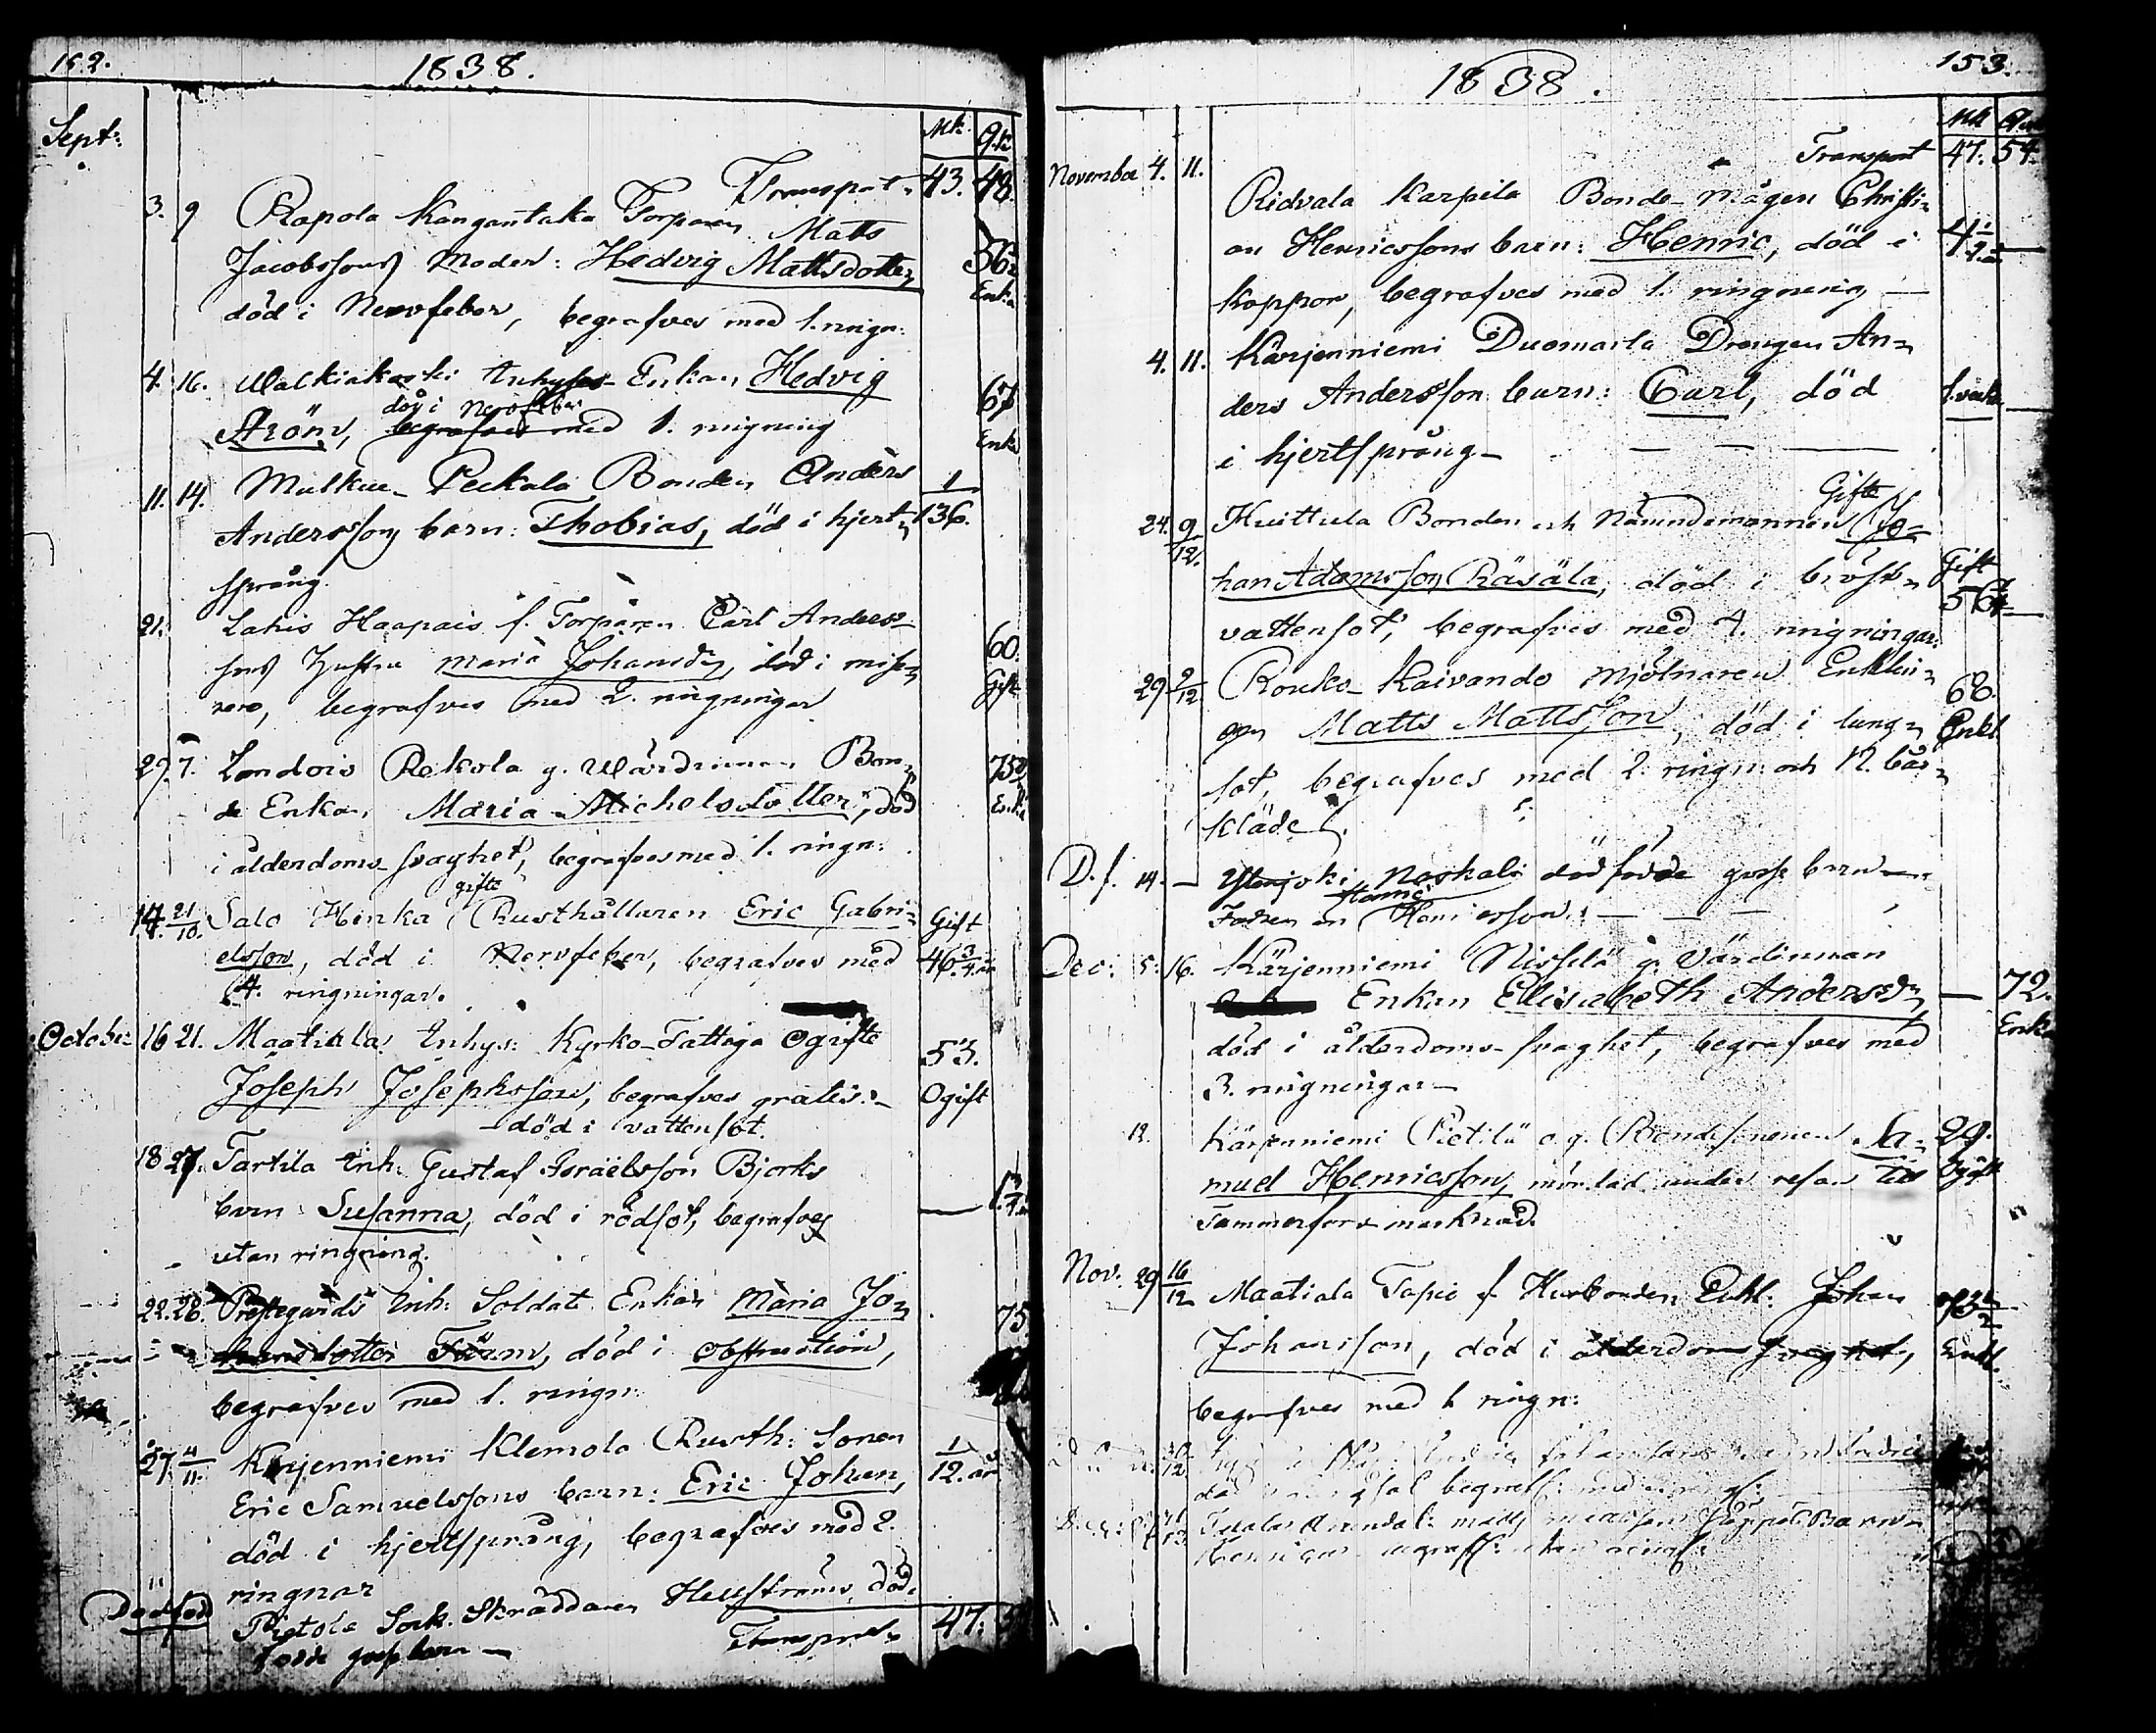 152.
1838.
Mk. Qk.
Sept:
Transport. 43. 48.
3. 9 Rapola Kangantaka Torparen Matts
Jacobssons Moder: Hedvig Mattsdotter, 56. Enka
död i Nervfeber, begrafves med 1. ringn:
4. 16. Walkiakoski Inhyses Enkan Hedvig
död i Nervfeber
Ström, begrafves med 1. ringning 67 Enk
11. 14. Mulkue Peckala Bonden Anders
Anderssons barn: Thobias, död i hjert= 1/136.
språng.
21. Lahis Haapais f. Torparen Carl Anders=
sons hustru Maria Johansdr, död i 60. Gift
begrafves med 2. ringningar
29. 7. Londois Rekola g. Wärdinnan Bon=
de Enkan Maria Michelsdotter, död 75 Enka
i ålderdoms svaghet, begrafves med 1. ringn:
gifte
14. 21/10. Salo Hinka Rusthållaren Eric Gabri= Gift
elsson, död i Nervfeber, begrafves med 46 3/4 år
4. ringningar.
October 16 21. Maatiala Inhys: Kyrko-Fattige Ogifte 53.
Joseph Josephsson, begrafves gratis. Ogift
död i vattensot.
18 27. Tartila Inh: Gustaf Israëlsson Björks
barn: Susanna, död i rödsot, begrafves
utan ringning.
22. 28. Prestegårds Inh: Soldats Enkan Maria Jo= 75
hansdotter död i obstruction,
begrafves med 1. ringn:
27. 4/11. Kärjenniemi Klemola Rusth: Sonen 1/12. år
Eric Samuelssons barn: Eric Johan,
död i hjertsprång, begrafves med 2.
ringnar
Dödföd Pietola Sock. Skräddaren Hellströms död=
födde gosse barn —
Transport 47.
1838.
153.
Mk
Transport 47. 54.
November 4. 11. Ridvala Karpila Bonde-Mågen Christi=
an Henricssons barn: Henric, död i
koppor, begrafves med 1. ringning —
4. 11. Kärjenniemi Duomarla Drängen An=
ders Andersson barn: Carl, död 1. vecka
i hjertsprång —
Gifte
24. 9/12. Huittula Bonden och Nämndemannen Jo=
han Adamsson Räsäla, död i bröst= Gift 56
vattensot, begrafves med 4. ringningar.
29 9/12 Rouko Kaivando Mjölnaren Enklin= 68.
gen Matts Mattsson, död i lung= Enkl.
sot, begrafves med 2 ringn: och N. bår=
kläde.
D.f. 14. — Naskali dödfödde gosse barn
Fadren Henricsson: —
Dec: 5. 16. Kärjenniemi Nissilä g. Värdinnan
Enkan Elisabeth Andersdr — 72. Enka
död i ålderdoms-svaghet, begrafves med
3. ringningar —
12. Kärjenniemi Pietilä o.g. Bondesonen Sa= 29.
muel Henricsson, mördad under resan till Ogift
Tammerfors marknad.
Nov. 29 16/12 Maatiala Tapio f. Husbonden Enkl: Johan 73 1/2
Johansson, död i ålderdoms svaghet, Enkl.
begrafves med 1 ringn: